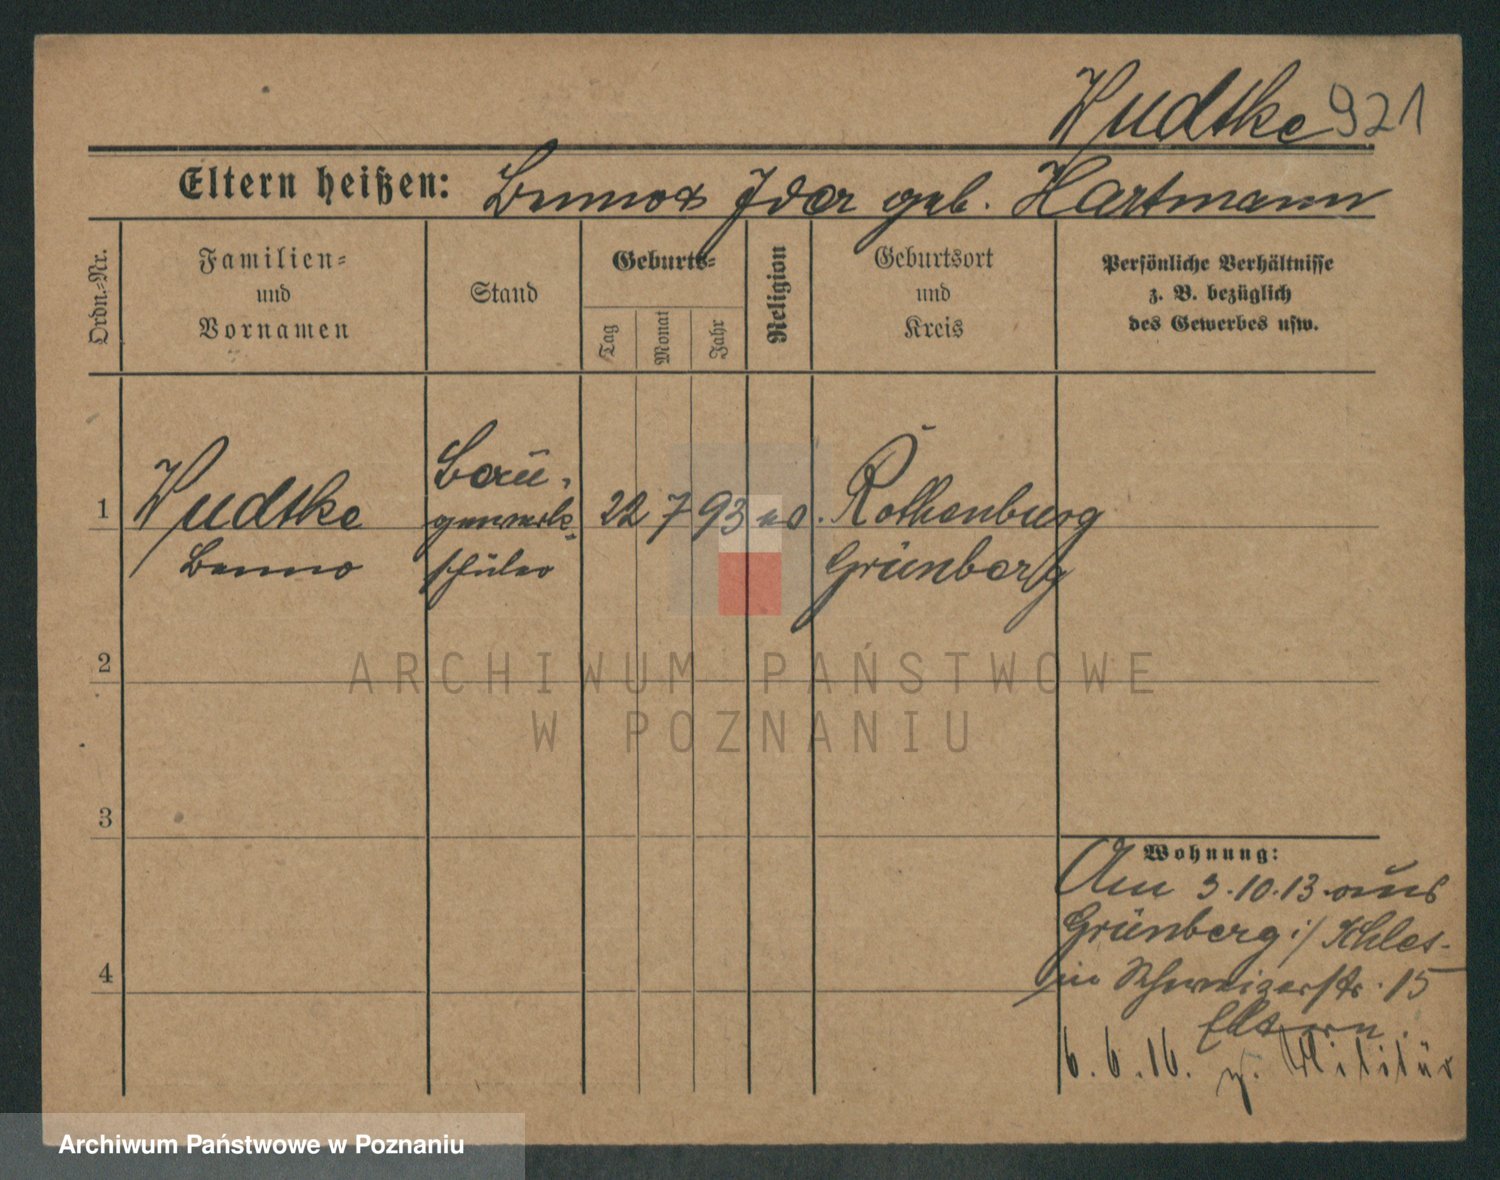 Wudtke 921
Eltern heißen: Benno & Ida geb. Hartmann
Ordn.-Nr.
Familien-
und
Vornamen
Stand
Geburts-
Tag
Monat
Jahr
Religion
Geburtsort
und
Kreis
Persönliche Verhältnisse
z. B. bezüglich
des Gewerbes usw.
1
Wudtke
Benno
Bau-
gewerk-
schüler
22 7 93 ev.
Rothenburg
Grünberg
2
3
4
Wohnung:
Am 3.10.13 aus
Grünberg i/Schles-
in Schweizerstr. 15
Eltern.
6.6.16. z. Militär
ARCHIWUM PAŃSTWOWE
W POZNANIU
Archiwum Państwowe w Poznaniu